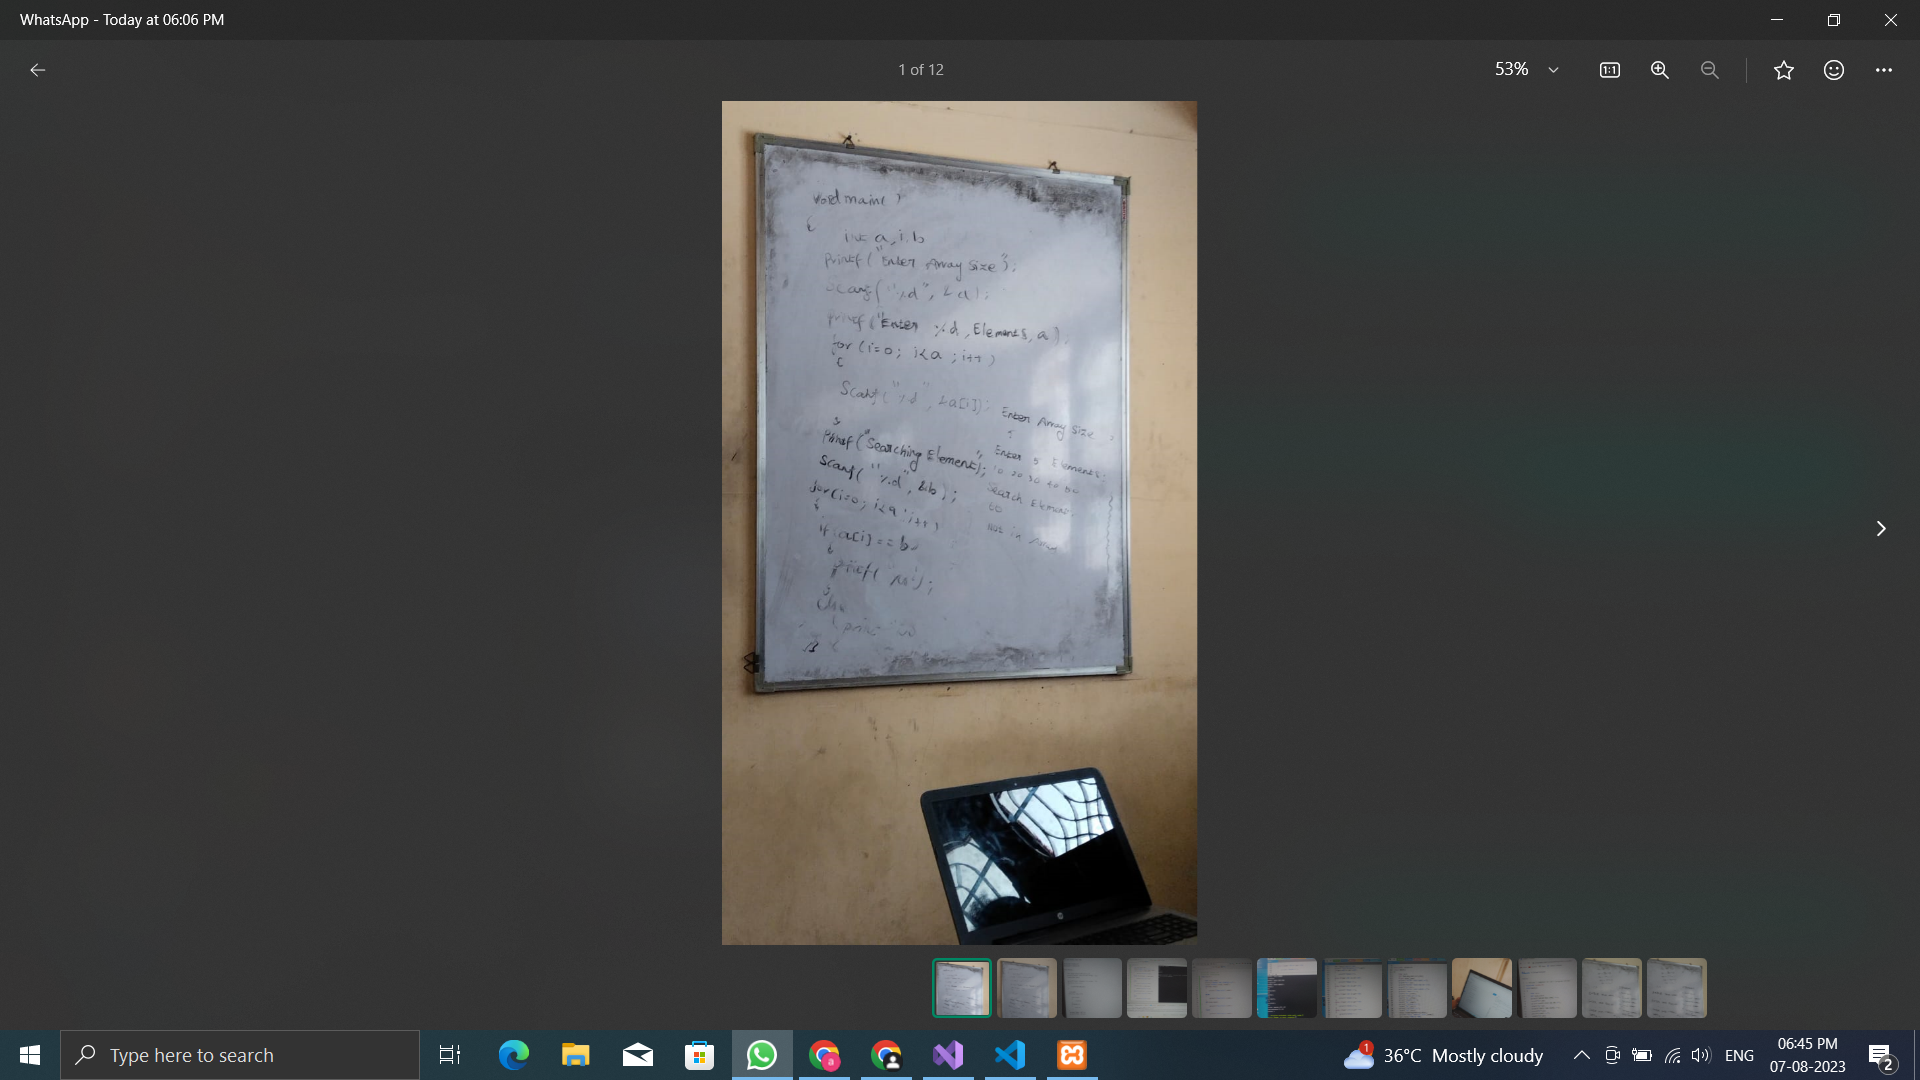 WhatsApp - Today at 06:06 PM
1 of 12
53%
void main( )
{
int a, i, b
Printf("Enter Array Size");
Scanf("%d", &a);
Printf("Enter %d, Elements, a);
for (i=0; i<a ; i++)
{
Scanf("%d", &a[i]);
}
Printf("Searching Element");
Scanf("%d", &b);
for(i=0; i<a ; i++)
{
if a[i] == b
{
Printf(
}
else
{ print
Enter Array Size
5
Enter 5 Elements:
10 20 30 40 50
Search Element
60
Not in
hp
Type here to search
1
36°C Mostly cloudy
ENG
06:45 PM
07-08-2023
2